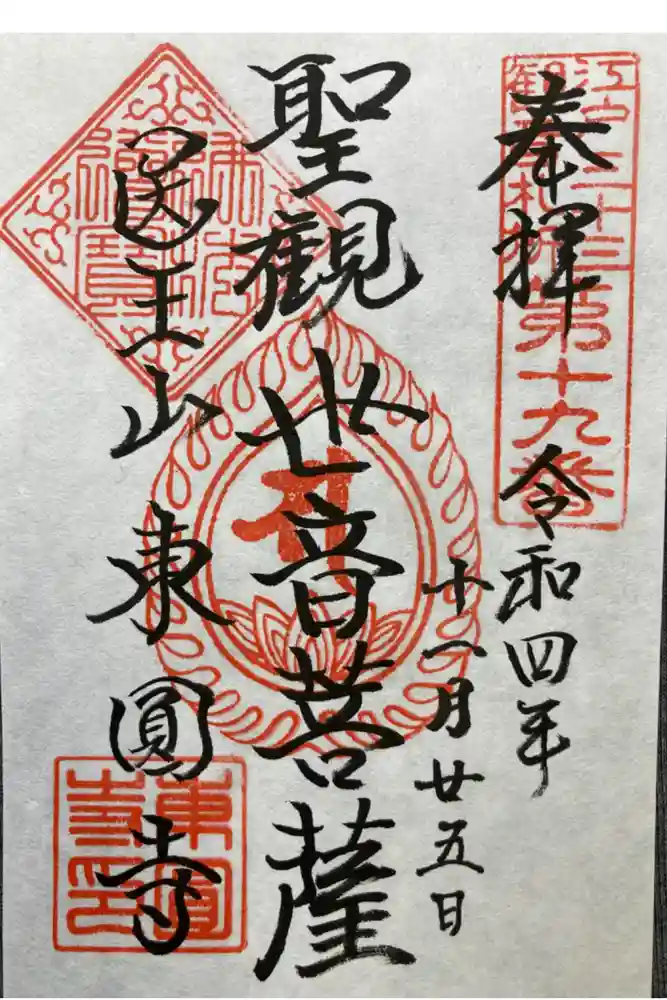 江戸三十三
観音札所
第十九番
奉拝
令和四年
十一月廿五日
聖観世音菩薩
医王山
東圓寺
東圓
寺印